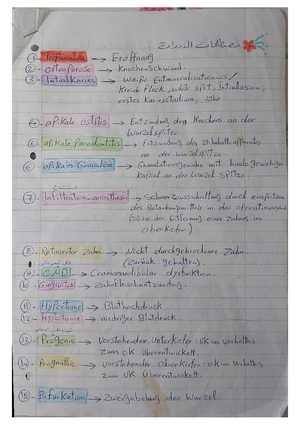 ① Trepanation → Eröffnung
② osteoporose → Knochenschwund.
③ Initialkaries → Weiße Entmineralisations /
Kreide Fleck, white spot, Initialläsion,
erstes Kariesstadium,
④ apikale ostitis → Entzündung des Knochens an der
Wurzelspitze
⑤ apikale Parodontitis → Entzündung des Zahnhalteapparates
an der Wurzelspitze
⑥ apikales Granulom → Granulationsgewebe mit bindegewebiger
Kapsel an der Wurzelspitze.
⑦ Infiltrationsanästhesie → Schmerzausschaltung durch einspritzen
des Betäubungsmittels in das operationsgebiet
(bei der Entfernung eines Zahnes im
oberkiefer)
⑧ Retinierter Zahn → Nicht durchgebrochener Zahn
(zurück gehalten).
⑨ CMD → Craniomandibular dysfunktion.
⑩ Gingivitis → Zahnfleischentzündung.
⑪ Hypertonie → Bluthochdruck
⑫ Hypotonie → niedriger Blutdruck.
⑬ Progenie → Vorstehender Unterkiefer: UK im Verhältnis
zum OK überentwickelt.
⑭ Prognathie → vorstehender Oberkiefer: OK im Verhältnis
zum UK Überentwickelt.
⑮ Bifurkation → Zweigabelung der Wurzel.